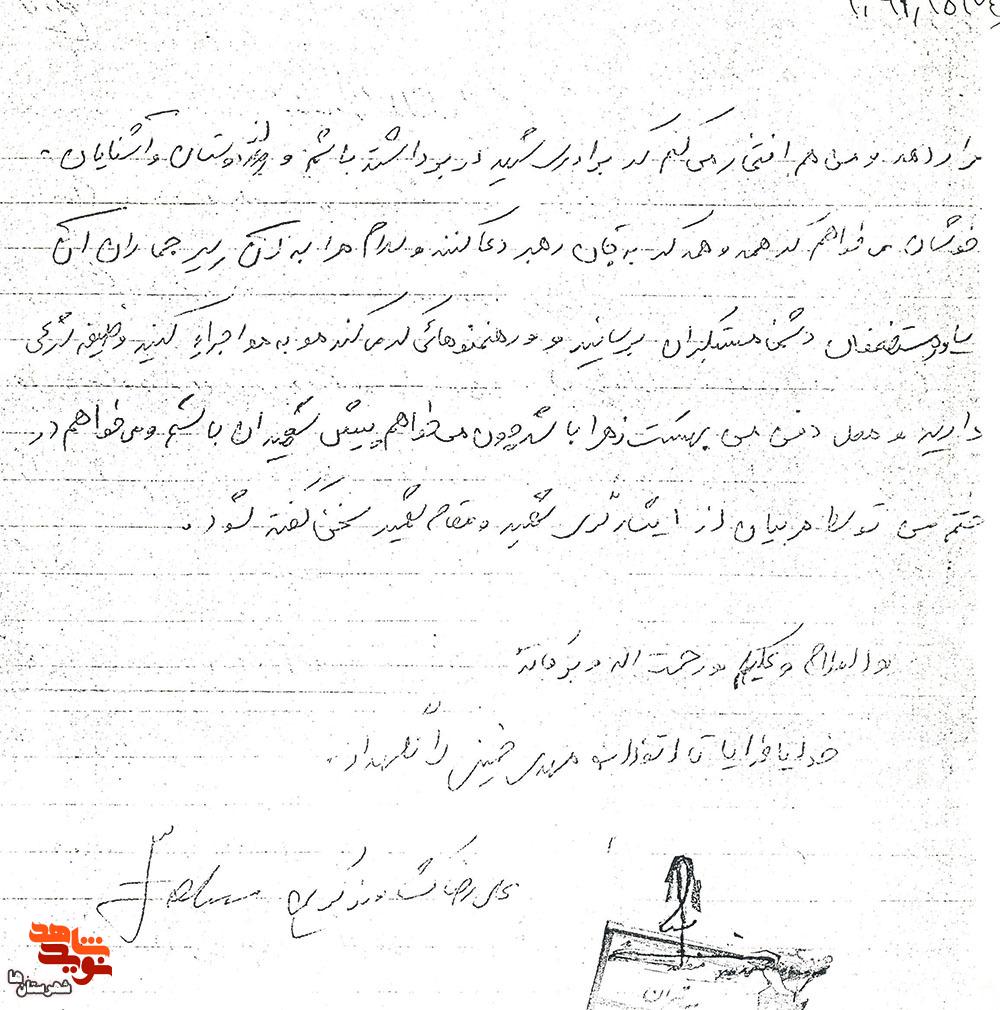 قرار دهد و من هم افتخار می کنم که برادری شهید در بر داشته باشم و از دوستان و آشنایان
خوشان می خواهم که همه و همه که به جان رهبر دعا کنند و سلام مرا به آن پیر جماران آن
یاور مستضعفان دشمن مستکبران برسانید و رهنمودهائی که می کند مو به مو اجراء کنید وظیفه شرعی
دارید و محل دفن من بهشت زهرا باشد چون می خواهم پیش شهیدان باشم و می خواهم در
ختم من توسط مربیان از ایثارگری شهید و مقام شهید سخن گفته شود .
والسلام وعلیکم و رحمت اله و برکاته
خدایا خدایا تا انقلاب مهدی خمینی را نگهدار .
علی رضا کشاورز
تهران
نوید شاهد
شهرستان ها